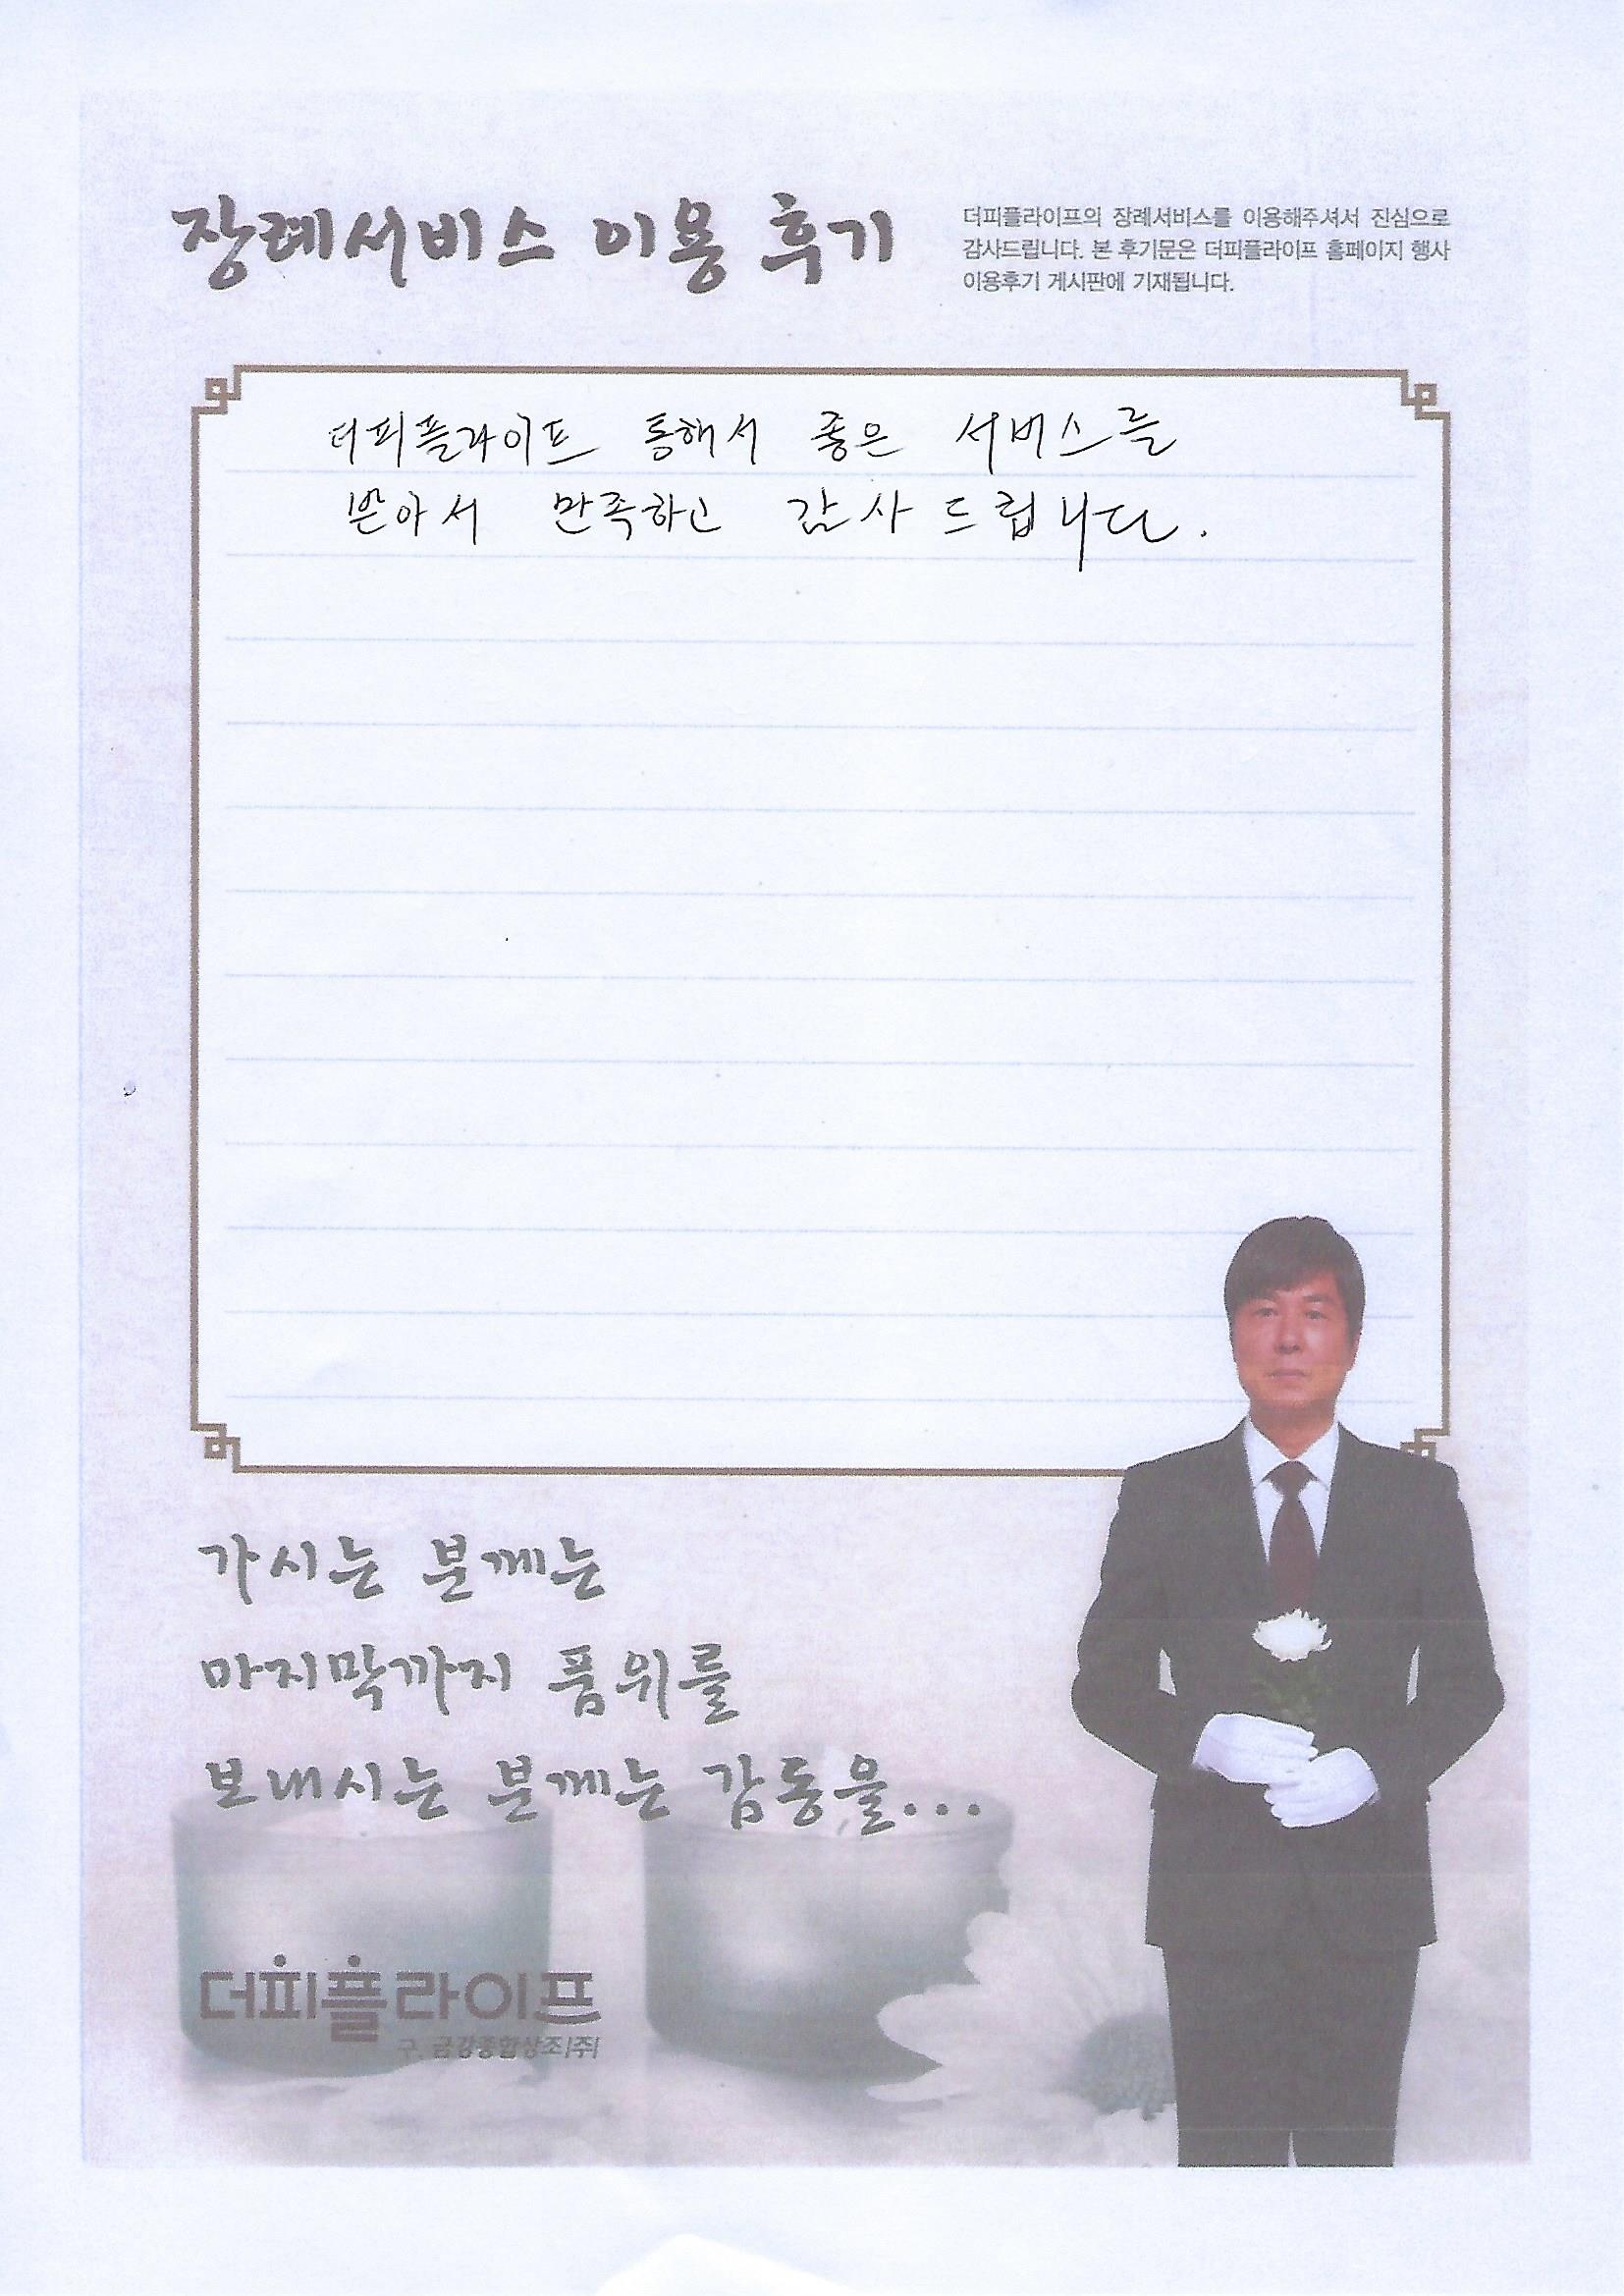 장례서비스 이용 후기
더피플라이프의 장례서비스를 이용해주셔서 진심으로
감사드립니다. 본 후기문은 더피플라이프 홈페이지 행사
이용후기 게시판에 기재됩니다.
더피플라이프 통해서 좋은 서비스를
받아서 만족하고 감사드립니다.
가시는 분께는
마지막까지 품위를
보내시는 분께는 감동을...
더피플라이프
구. 금강종합상조(주)